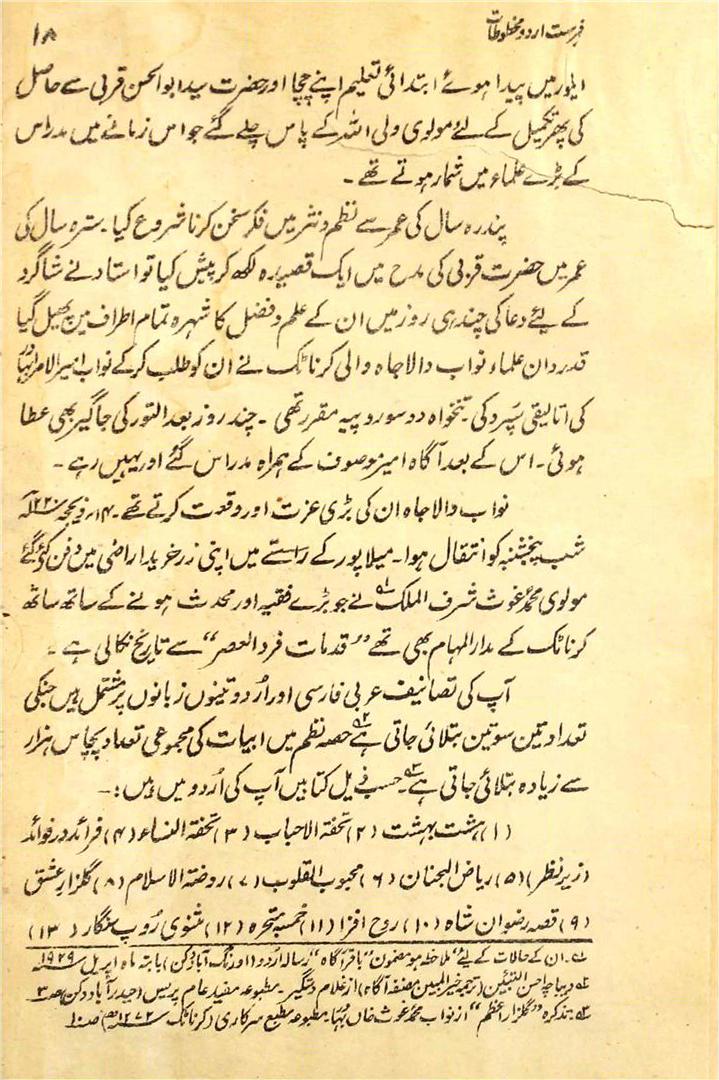 فہرست اردو مخطوطات ۱۸
ایلور میں پیدا ہوئے ابتدائی تعلیم اپنے چچا اور حضرت سید ابو الحسن قربی سے حاصل
کی پھر تکمیل کے لئے مولوی ولی اللہ کے پاس چلے گئے جو اس زمانے میں مدراس
کے بڑے علماء میں شمار ہوتے تھے ۔
پندرہ سال کی عمر سے نظم و نثر میں فکر سخن کرنا شروع کیا ۔ سترہ سال کی
عمر میں حضرت قربی کی مدح میں ایک قصیدہ لکھ کر پیش کیا تو استاد نے شاگرد
کے لیئے دعا کی چند ہی روز میں ان کے علم و فضل کا شہرہ تمام اطراف میں پھیل گیا
قدردان علماء نواب والا جاہ والی کرناٹک نے ان کو طلب کر کے نواب امیر الامرا بہادر
کی اتالیقی سپرد کی ۔ تنخواہ دو سو روپیہ مقرر تھی ۔ چند روز بعد التور کی جاگیر بھی عطا
ہوئی ۔ اس کے بعد آگاہ امیر موصوف کے ہمراہ مدراس گئے اور یہیں رہے ۔
نواب والا جاہ ان کی بڑی عزت اور وقعت کرتے تھے ۔ ۱۴؍ ذیحجہ ۱۲۲۰ھ
شب پنجشنبہ کو انتقال ہوا ۔ میلاپور کے راستے میں اپنی زر خرید اراضی میں دفن کئے گئے
مولوی محمد غوث شرف الملک ؎۱ نے جو بڑے فقیہ اور محدث ہونے کے ساتھ ساتھ
کرناٹک کے مدار المہام بھی تھے ”قدمات فرد العصر“ سے تاریخ نکالی ہے ۔
آپ کی تصانیف عربی فارسی اور اُردو تینوں زبانوں پر مشتمل ہیں جنکی
تعداد تین سو تین بتلائی جاتی ہے ؎۲ حصہ نظم میں ابیات کی مجموعی تعداد پچاس ہزار
سے زیادہ بتلائی جاتی ہے ؎۳ حسب ذیل کتابیں آپ کی اُردو میں ہیں :۔
(۱) ہشت بہشت (۲) تحفۃ الاحباب (۳) تحفۃ النساء (۴) فرائد در فوائد
(زیر نظر) (۵) ریاض الجنان (۶) محبوب القلوب (۷) روضۃ الاسلام (۸) گلزار عشق
(۹) قصہ رضوان شاہ (۱۰) روح افزا (۱۱) خمسہ متحیرہ (۱۲) مثنوی رُوپ سنگار (۱۳)
؎۱ ۔ ان کے حالات کے لیئے ملاحظہ ہو مضمون ”باقر آگاہ“ رسالہ اُردو (اورنگ آباد دکن) بابتہ ماہ اپریل ۱۹۲۹ء
؎۲ دیباچہ احسن التبیین (ترجمہ خیر المبین مصنفہ آگاہ) از غلام دستگیر ۔ مطبوعہ مفید عام پریس (حیدرآباد دکن) صہ ۳
؎۳ تذکرہ ”گلزار اعظم“ از نواب محمد غوث خاں بہادر مطبوعہ مطبع سرکاری (کرناٹک ۱۲۷۲ھ) صہ ۱۰